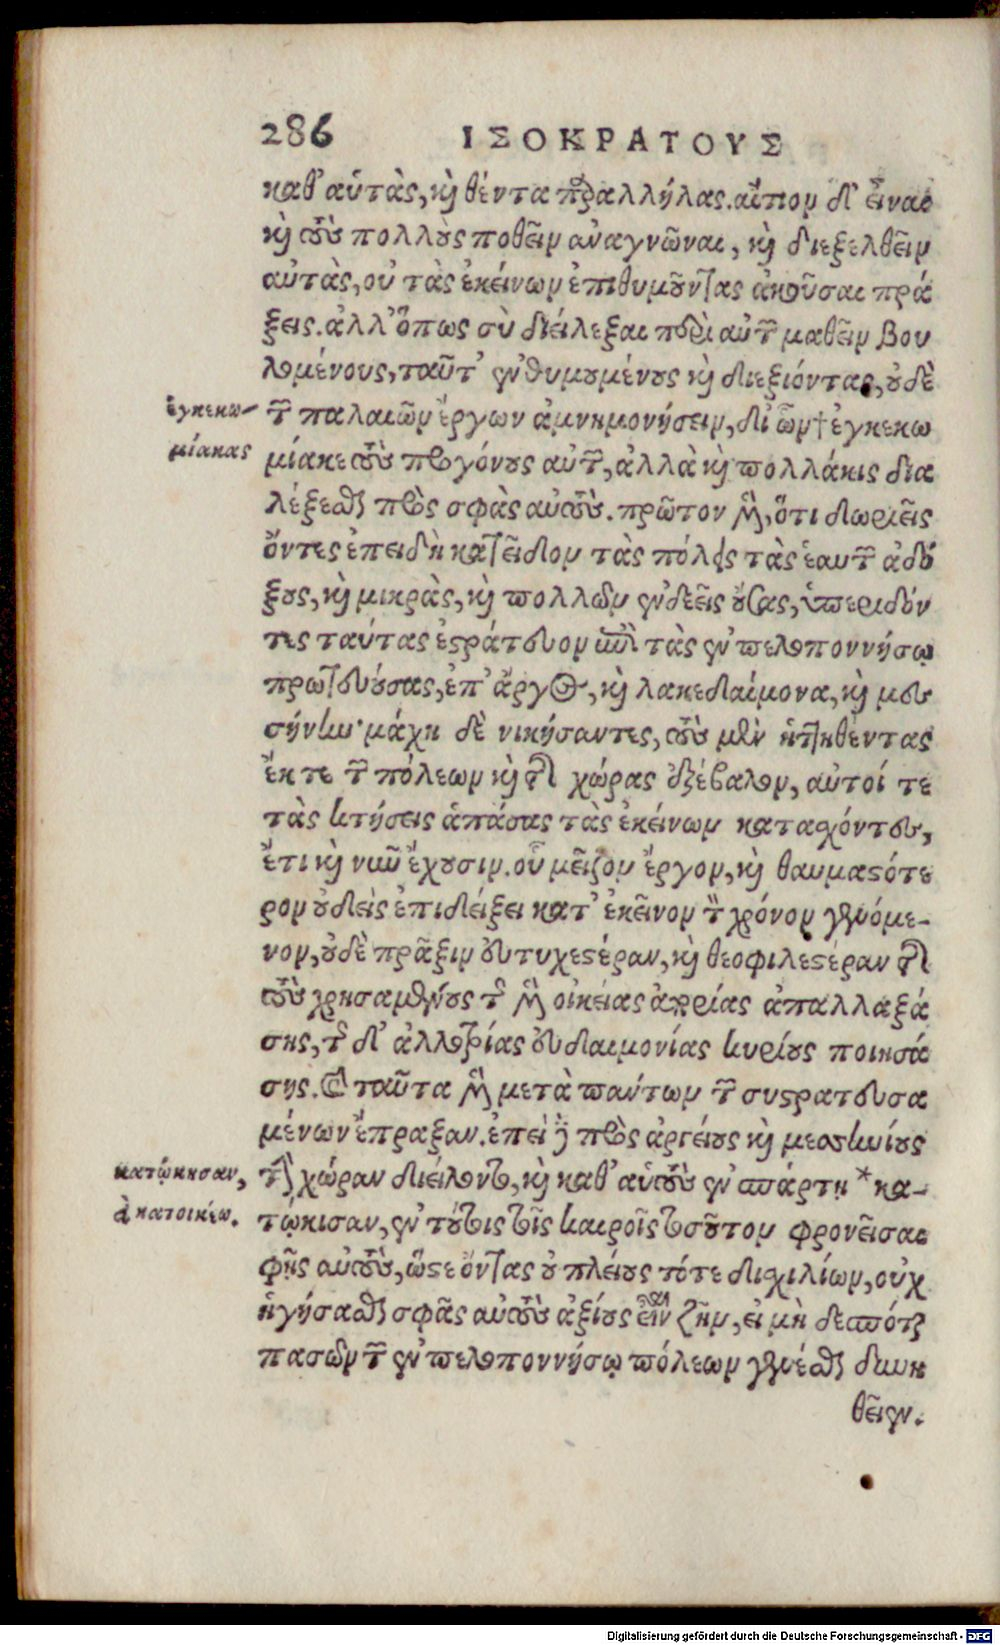 286 ΙΣΟΚΡΑΤΟΥΣ
καθ' αὑτὰς, καὶ θέντα παραλλήλας. αἴτιον δ' εἶναι
καὶ τοὺς πολλοὺς ποθεῖν ἀναγνῶναι, καὶ διεξελθεῖν
αὐτὰς, οὐ τὰς ἐκείνων ἐπιθυμοῦντας ἀκοῦσαι πρά
ξεις. ἀλλ' ὅπως σὺ διείλεξαι περὶ αὐτῶν μαθεῖν βου
λομένους, ταῦτ' ἐνθυμουμένους καὶ διεξιόντας, οὐδὲ
ἐγκεκω-
τῶν παλαιῶν ἔργων ἀμνημονήσειν, δι' ὧν † ἐγκεκω
μίακας
μίακε τοὺς προγόνους αὐτῶν, ἀλλὰ καὶ πολλάκις δια
λέξεσθαι πρὸς σφὰς αὐτούς. πρῶτον μὲν, ὅτι δωριεῖς
ὄντες ἐπειδὴ κατεῖδον τὰς πόλεις τὰς ἑαυτῶν ἀδό
ξους, καὶ μικρὰς, καὶ πολλῶν ἐνδεεῖς οὔσας, ὑπεριδόν
τες ταύτας ἐστράτευον ἐπὶ τὰς ἐν πελοποννήσῳ
πρωτευούσας, ἐπ' ἄργος, καὶ λακεδαίμονα, καὶ μεσ
σήνην· μάχη δὲ νικήσαντες, τοὺς μὲν ἡττηθέντας
ἔκ τε τῶν πόλεων καὶ τῆς χώρας ἐξέβαλον, αὐτοί τε
τὰς κτήσεις ἁπάσας τὰς ἐκείνων κατασχόντες,
ἔτι καὶ νῦν ἔχουσιν. οὗ μεῖζον ἔργον, καὶ θαυμαστότε
ρον οὐδεὶς ἐπιδείξει κατ' ἐκεῖνον τὸν χρόνον γενόμε-
νον, οὐδὲ πρᾶξιν εὐτυχεστέραν, καὶ θεοφιλεστέραν τῆς
τοὺς χρησαμένους τῆς μὲν οἰκείας ἀπορίας ἀπαλλαξά
σης, τῆς δ' ἀλλοτρίας εὐδαιμονίας κυρίους ποιησά
σης. Καὶ ταῦτα μὲν μετὰ πάντων τῶν συστρατευσα
μένων ἔπραξαν. ἐπεὶ δὲ πρὸς ἀργείους καὶ μεσσηνίους
κατῴκησαν,
τὴν χώραν διείλοντο, καὶ καθ' αὑτοὺς ἐν σπάρτῃ * κα-
ἀ κατοικέω.
τῴκισαν, ἐν τούτοις τοῖς καιροῖς τοσοῦτον φρονεῖσαι
φῂς αὐτοὺς, ὥστε ὄντας οὐ πλείους τότε δισχιλίων, οὐχ
ἡγήσασθαι σφᾶς αὐτοὺς ἀξίους εἶναι ζῆν, εἰ μὴ δεσπόται
πασῶν τῶν ἐν πελοποννήσῳ πόλεων γενέσθαι δυνη
θεῖεν.
Digitalisierung gefördert durch die Deutsche Forschungsgemeinschaft - DFG